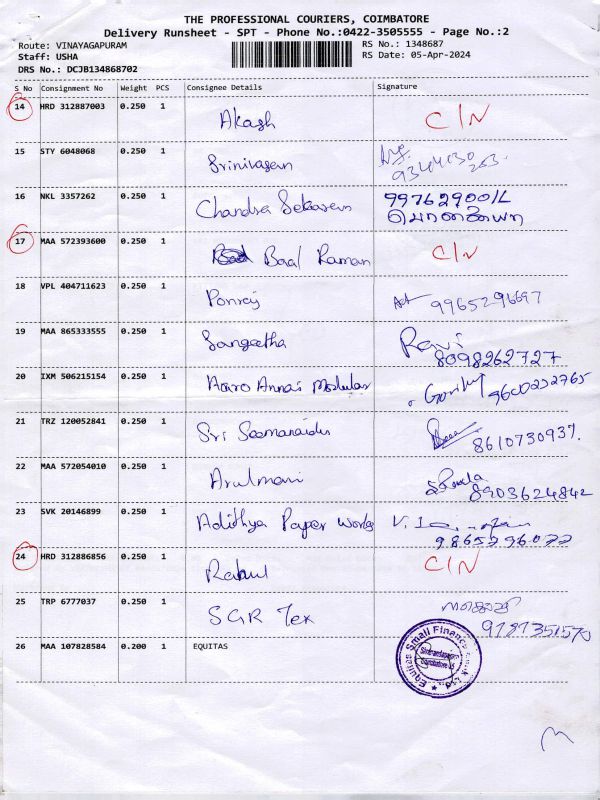 THE PROFESSIONAL COURIERS, COIMBATORE
Delivery Runsheet - SPT - Phone No.:0422-3505555 - Page No.:2
Route: VINAYAGAPURAM
Staff: USHA
DRS No.: DCJB134868702
RS No.: 1348687
RS Date: 05-Apr-2024
S No Consignment No Weight PCS Consignee Details Signature
14 HRD 312887003 0.250 1 Akash C/N
15 STY 6048068 0.250 1 Srinivasan
16 NKL 3357262 0.250 1 Chandra Sekaran
17 MAA 572393600 0.250 1 Baal Raman C/N
18 VPL 404711623 0.250 1 Ponraj 9965296697
19 MAA 865333555 0.250 1 Sangeetha Ravi 8098262727
20 IXM 506215154 0.250 1 9600252765
21 TRZ 120052841 0.250 1 Sri 8610730937.
22 MAA 572054010 0.250 1 Arulmani 8903624842
23 SVK 20146899 0.250 1 Adithya Paper Works 9865296072
24 HRD 312886856 0.250 1 Rahul C/N
25 TRP 6777037 0.250 1 SGR Tex 9787351570
26 MAA 107828584 0.200 1 EQUITAS Equitas Small Finance Bank Ltd.